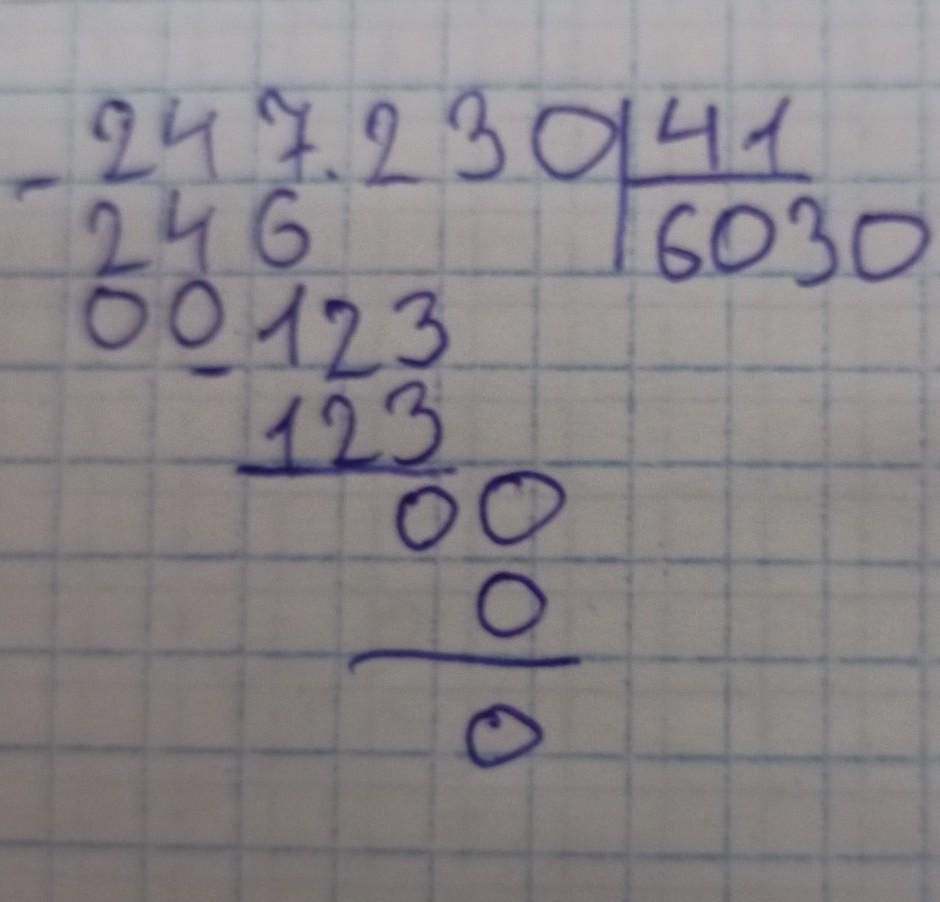 - 247.230 41
246 6030
00 - 123
123
00
0
0